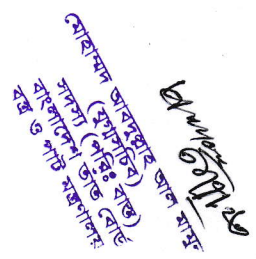 মোহাম্মদ আবদুল্লাহ আল মামুন
(যুগ্মসচিব)
সদস্য (পরিঃ ও বাস্তঃ)
বাংলাদেশ তাঁত বোর্ড
বস্ত্র ও পাট মন্ত্রণালয়